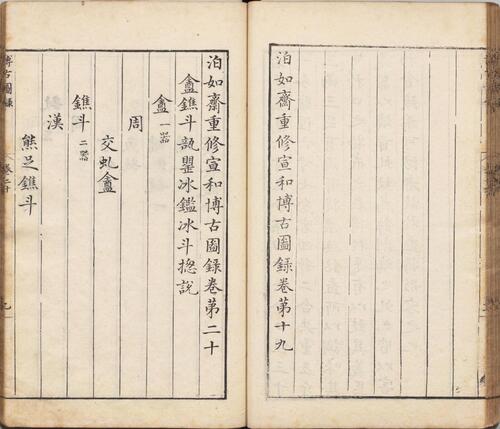 泊如齋重修宣和博古圖錄卷第十九
泊如齋重修宣和博古圖錄卷第二十
盦鐎斗瓿罌冰鑑冰斗摠說
盦一器
周
交虬盦
鐎斗二器
漢
熊足鐎斗
博古圖錄
卷二十